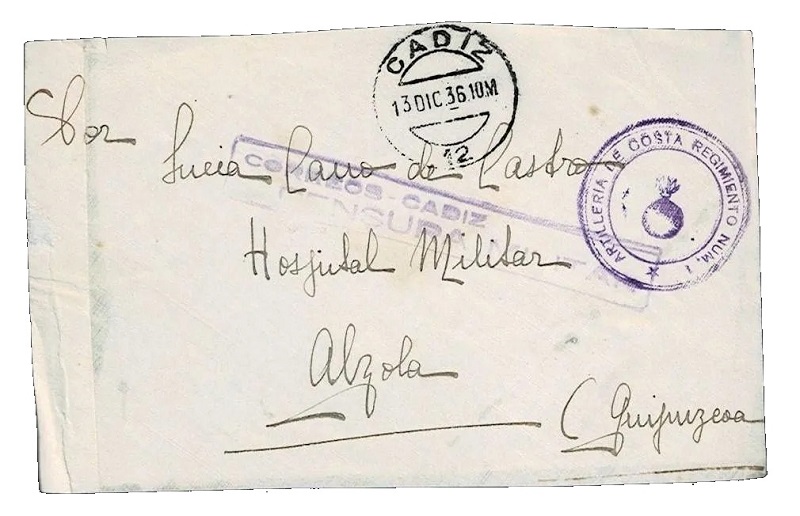 CADIZ
13 DIC.36.10M
12
Sor
Lucia Cano de Castro
CORREOS - CADIZ
CENSURA MILITAR
ARTILLERIA DE COSTA REGIMIENTO NUM. 1
Hospital Militar
Alzola
(Guipuzcoa